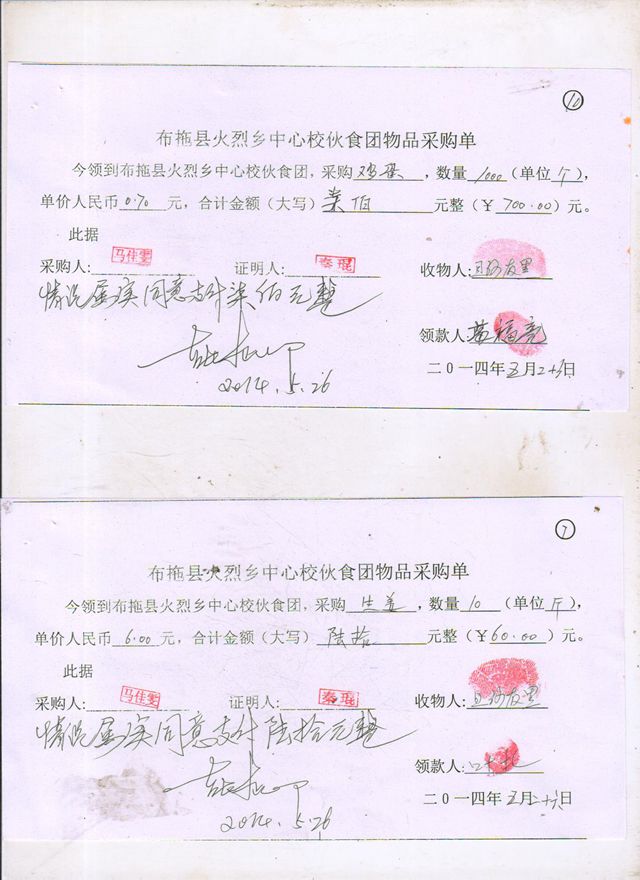 10
布拖县火烈乡中心校伙食团物品采购单
今领到布拖县火烈乡中心校伙食团，采购 鸡蛋 ，数量 1000 （单位 个 ），
单价人民币 0.70 元，合计金额（大写） 柒佰 元整（￥ 700.00 ）元。
此据
采购人: 马佳雯 证明人: 秦琨 收物人: 日 友里
情况属实同意支付柒佰元整
领款人 黄福亮
2014.5.26
二0一四年五月二十六日
7
布拖县火烈乡中心校伙食团物品采购单
今领到布拖县火烈乡中心校伙食团，采购 生姜 ，数量 10 （单位 斤 ），
单价人民币 6.00 元，合计金额（大写） 陆拾 元整（￥ 60.00 ）元。
此据
采购人: 马佳雯 证明人: 秦琨 收物人: 日 友里
情况属实同意支付陆拾元整
领款人:
2014.5.26
二0一四年五月二十六日